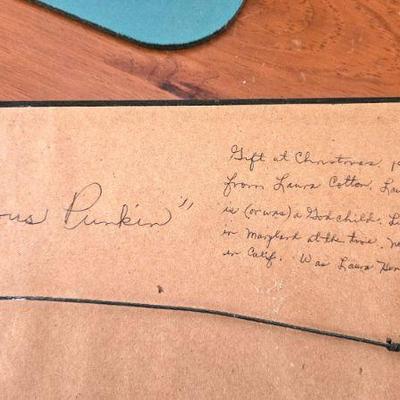 ous Punkin"
Gift at Christmas,
from Laura Cotton.
is (or was) a Godchild.
in Maryland at the time.
in Calif. Was Laura